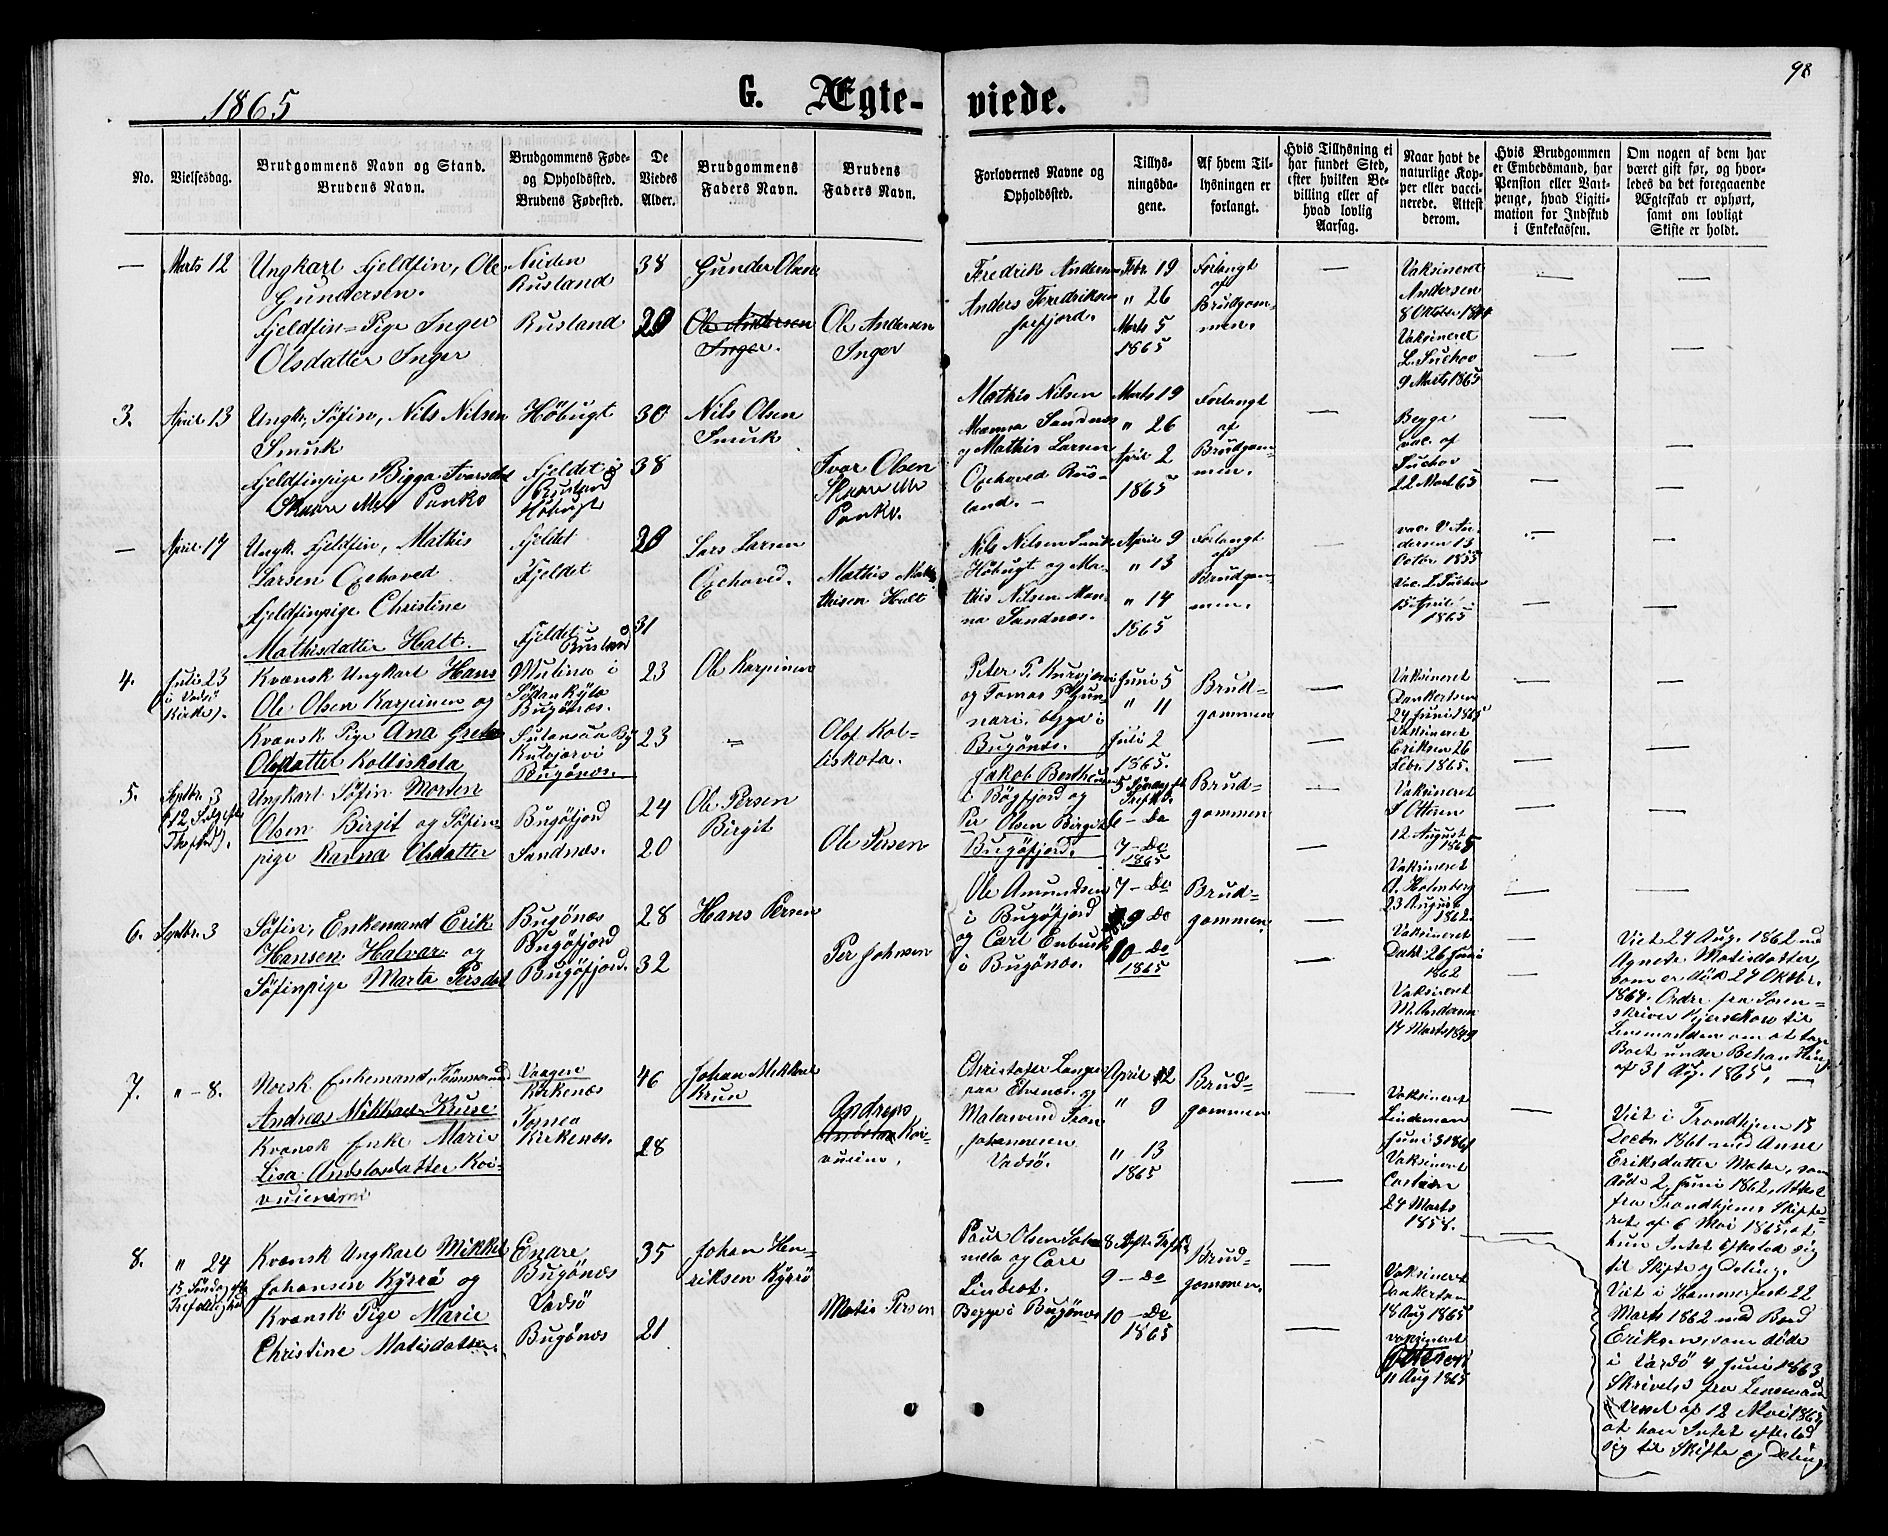 98
1865
G. Ægte-viede.
No.
Vielsesdag.
Brudgommens Navn og Stand.
Brudens Navn.
Brudgommens Føde-
og Opholdssted.
Brudens Fødested.
De
Viedes
Alder.
Brudgommens
Faders Navn.
Brudens
Faders Navn.
Forlovernes Navne og
Opholdssted.
Tillys-
ningsda-
gene.
Af hvem Til-
lysningen er
forlangt.
Hvis Tillysning ei
har fundet Sted,
efter hvilken Be-
villing eller af
hvad lovlig
Aarsag.
Naar havt de
naturlige Kop-
per eller vacci-
nerede. Attest
derom.
Hvis Brudgommen
er Embedsmand, har
Pension eller Vart-
penge, hvad Legiti-
mation for Indskud
i Enkekassen.
Om nogen af dem har
været gift før, og hvor-
ledes da det foregaaende
Ægteskab er ophørt,
samt om lovligt
Skifte er holdt.
— Marts 12
Ungkarl Fjeldfin, Ole
Gundersen.
Fjeldfin-Pige Inger
Olsdatter Inger
Neiden
Rusland
Rusland
38
29
Gunder Olsen
Ole Andersen
Inger.
Ole Andersen
Inger
Fredrik Andersen
Anders Fredriksen
Jarfjord.
Febr. 19
" 26
Marts 5
1865
Forlangt
af
Brudgom-
men.
Vaksineret
Andersen
8 Oktober
Vaksineret
L. Suchow
9 Marts 1865
3. April 13
Ungk. Søfin, Nils Nilsen
Smuk
Fjeldfinpige Bigga Ivarsdat
Skaare Mek Panko
Høbugt
Fjeldet i
Rusland
Høbugt
30
38
Nils Olsen
Smuk
Ivar Olsen
Skaare
Panko.
Mathis Nilsen
Manna Sandnæs
og Mathis Larsen
Oxehoved Rus-
land. —
Marts 19
" 26
April 2
1865
Forlangt
af
Brudgom-
men.
Begge
vac. af
Suchow
22 Mart 65
— April 17
Ungk. Fjeldfin, Mathis
Larsen Oxehoved
Fjeldfinpige Christine
Mathisdatter Halt.
Fjeldet
Fjeldet
Fjeldet i
Rusland
29
31
Lars Larsen
Oxehoved.
Mathis Mat-
thisen Halt
Nils Nilsen Smuk
Høbugt og Ma-
this Nilsen Man-
na Sandnæs.
April 9
" 13
" 14
1865
Forlangt
af
Brudgom-
men.
vac. V. An-
dersen 13
Octbr 1855
Vac. L. Suchow
15 April
1865
4. Juli 23
i Vadsø
Kirke).
Kvænsk Ungkarl Hans
Ole Olsen Karpinen og
Kvænsk Pige Ana Greta
Olsdatter Kolliskota
i
Sodankyla
Bugønæs.
Kulojarvi
Bugønæs.
23
23
Ole Karpinen
"
Olof Kol-
liskota.
og Tomas
begge i
Bugønæs.
Juni 5
" 11
Juli 2
1865.
Brud-
gommen
Vaksineret
Dankertsen
24 Juni 1865
Vaksineret
Eriksen 26
Febr. 1865.
5. Septbr. 3
(12 Søndg. efter
Ungkarl Søfin Morten
Olsen Birgit og Søfin-
pige Ravna Olsdatter
Bugøfjord
Sandnæs.
24
20
Ole Persen
Birgit
Ole Persen
Jakob
i Bøgfjord og
Per Olsen Birgit
Bugøfjord.
5 Søndag eft
Trefkd.
6 — Do
7 — Do
1865
Brud-
gommen
Vaksineret
S Ottesen
12 August
1865
Vaksineret
A. Holmberg
23 August
1862.
6. Septbr. 3
Søfin, Enkemand Erik
Hansen Halvar og
Søfinpige Marta Persdat
Bugønæs
Bugøfjord
Bugøfjord.
28
32
Hans Persen
Per Johnsen
Ole Amundsen
i Bugøfjord
og Carl Enbusk
i Bugønæs.
7 — Do
9 Do
10 — Do
1865
Brud-
gommen.
Vaksineret
Dahl 26 Juni
1862
Vaksineret
M. Andersen
17 Marts 1849
Viet 24 Aug. 1862 med
Agnete Matisdatter,
som er død 27 Oktbr.
1864. Ordre fra Soren-
skriver Kjerschow til
Lensmanden om at tage
Boet under Behandling
af 31 Aug. 1865. —
7. " — 8.
Norsk Enkemand, Tømmermand
Andreas Mikkael Kruse
Kvænsk Enke Marie
Lisa Andersdatter Koi-
vuieniemi
Vaagen
Kirkenæs
Tornea
Kirkenæs.
46
28
Johan Mikkael
Krun
Andreas
Koi-
vuieni.
Christofer Lange
paa Elvenæs og
Malersvend
Johannesen
Vadsø.
April 2
" 9
" 13
1865
Brud-
gommen
Vaksineret
Lindeman
Juni 3 1861
Vaksineret
Castren
24 Marts
1858.
Viet i Trondhjem 15
Decbr. 1861 med Anne
Eriksdatter Malar, som
døde 2 Juni 1862, Attest
fra Trondhjems Skifte-
ret af 6 Mai 1865, at
hun Intet efterlod sig
til Skifte og Deling.
8. " 24
15 Søndag eft
Trefoldighed
Kvænsk Ungkarl Mikkel
Johansen Kyrrø og
Kvænsk Pige Marie
Christine Matisdatter.
Enare
Bugønæs
Vadsø
Bugønæs
35
21
Johan Hen-
riksen Kyrrø
Matis Persen
Paul Olsen
og Carl
Begge i Bugønæs
8 S. efte Trefkd
9 — Do
10 — Do
1865
Brud-
gommen.
Vaksineret
Dankertsen
18 Aug 1865
vaksineret
Ottesen
11 Aug 1865
Viet i Hammerfest 22
Marts 1862 med Bernd
Eriksen, som døde
i Vardø 4 Juni 1863
Skrivelse fra Lensmand
Wessel af 12 Mai 1865
at han Intet efterlod
sig til Skifte og Deling